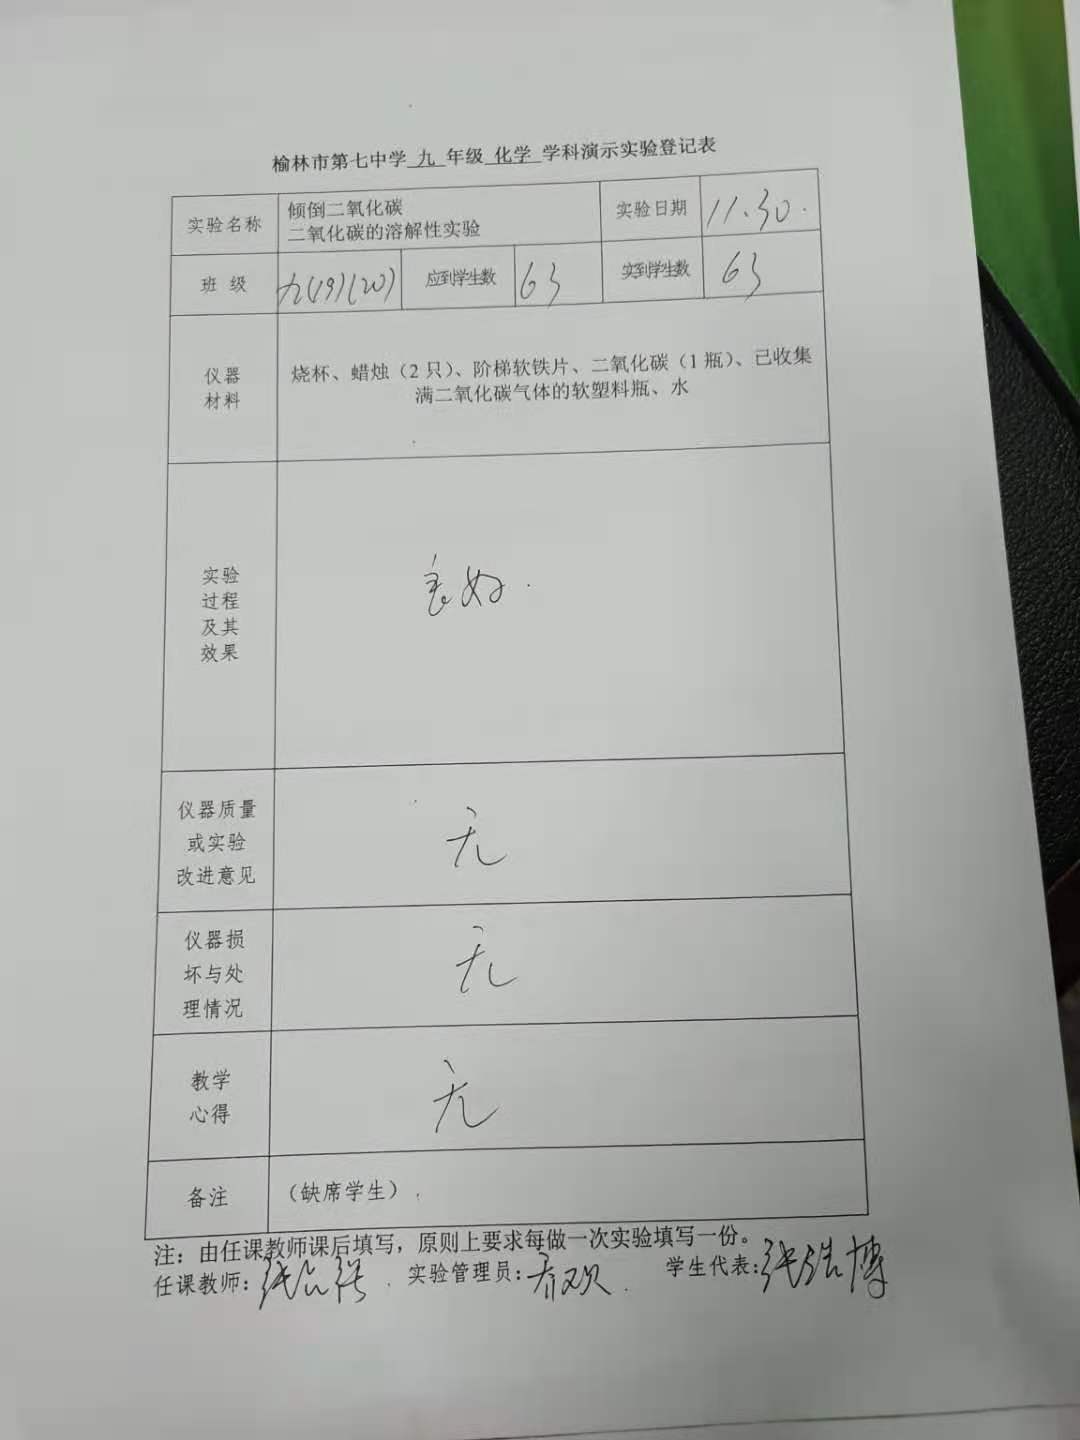 榆林市第七中学 九 年级 化学 学科演示实验登记表
实验名称
倾倒二氧化碳
二氧化碳的溶解性实验
实验日期
11.30.
班 级
九(19)(20)
应到学生数
63
实到学生数
63
仪器
材料
烧杯、蜡烛（2 只）、阶梯软铁片、二氧化碳（1 瓶）、已收集
满二氧化碳气体的软塑料瓶、水
实验
过程
及其
效果
良好.
仪器质量
或实验
改进意见
无
仪器损
坏与处
理情况
无
教学
心得
无
备注
（缺席学生）.
注：由任课教师课后填写，原则上要求每做一次实验填写一份。
任课教师: 实验管理员: 乔欢. 学生代表: 张浩博